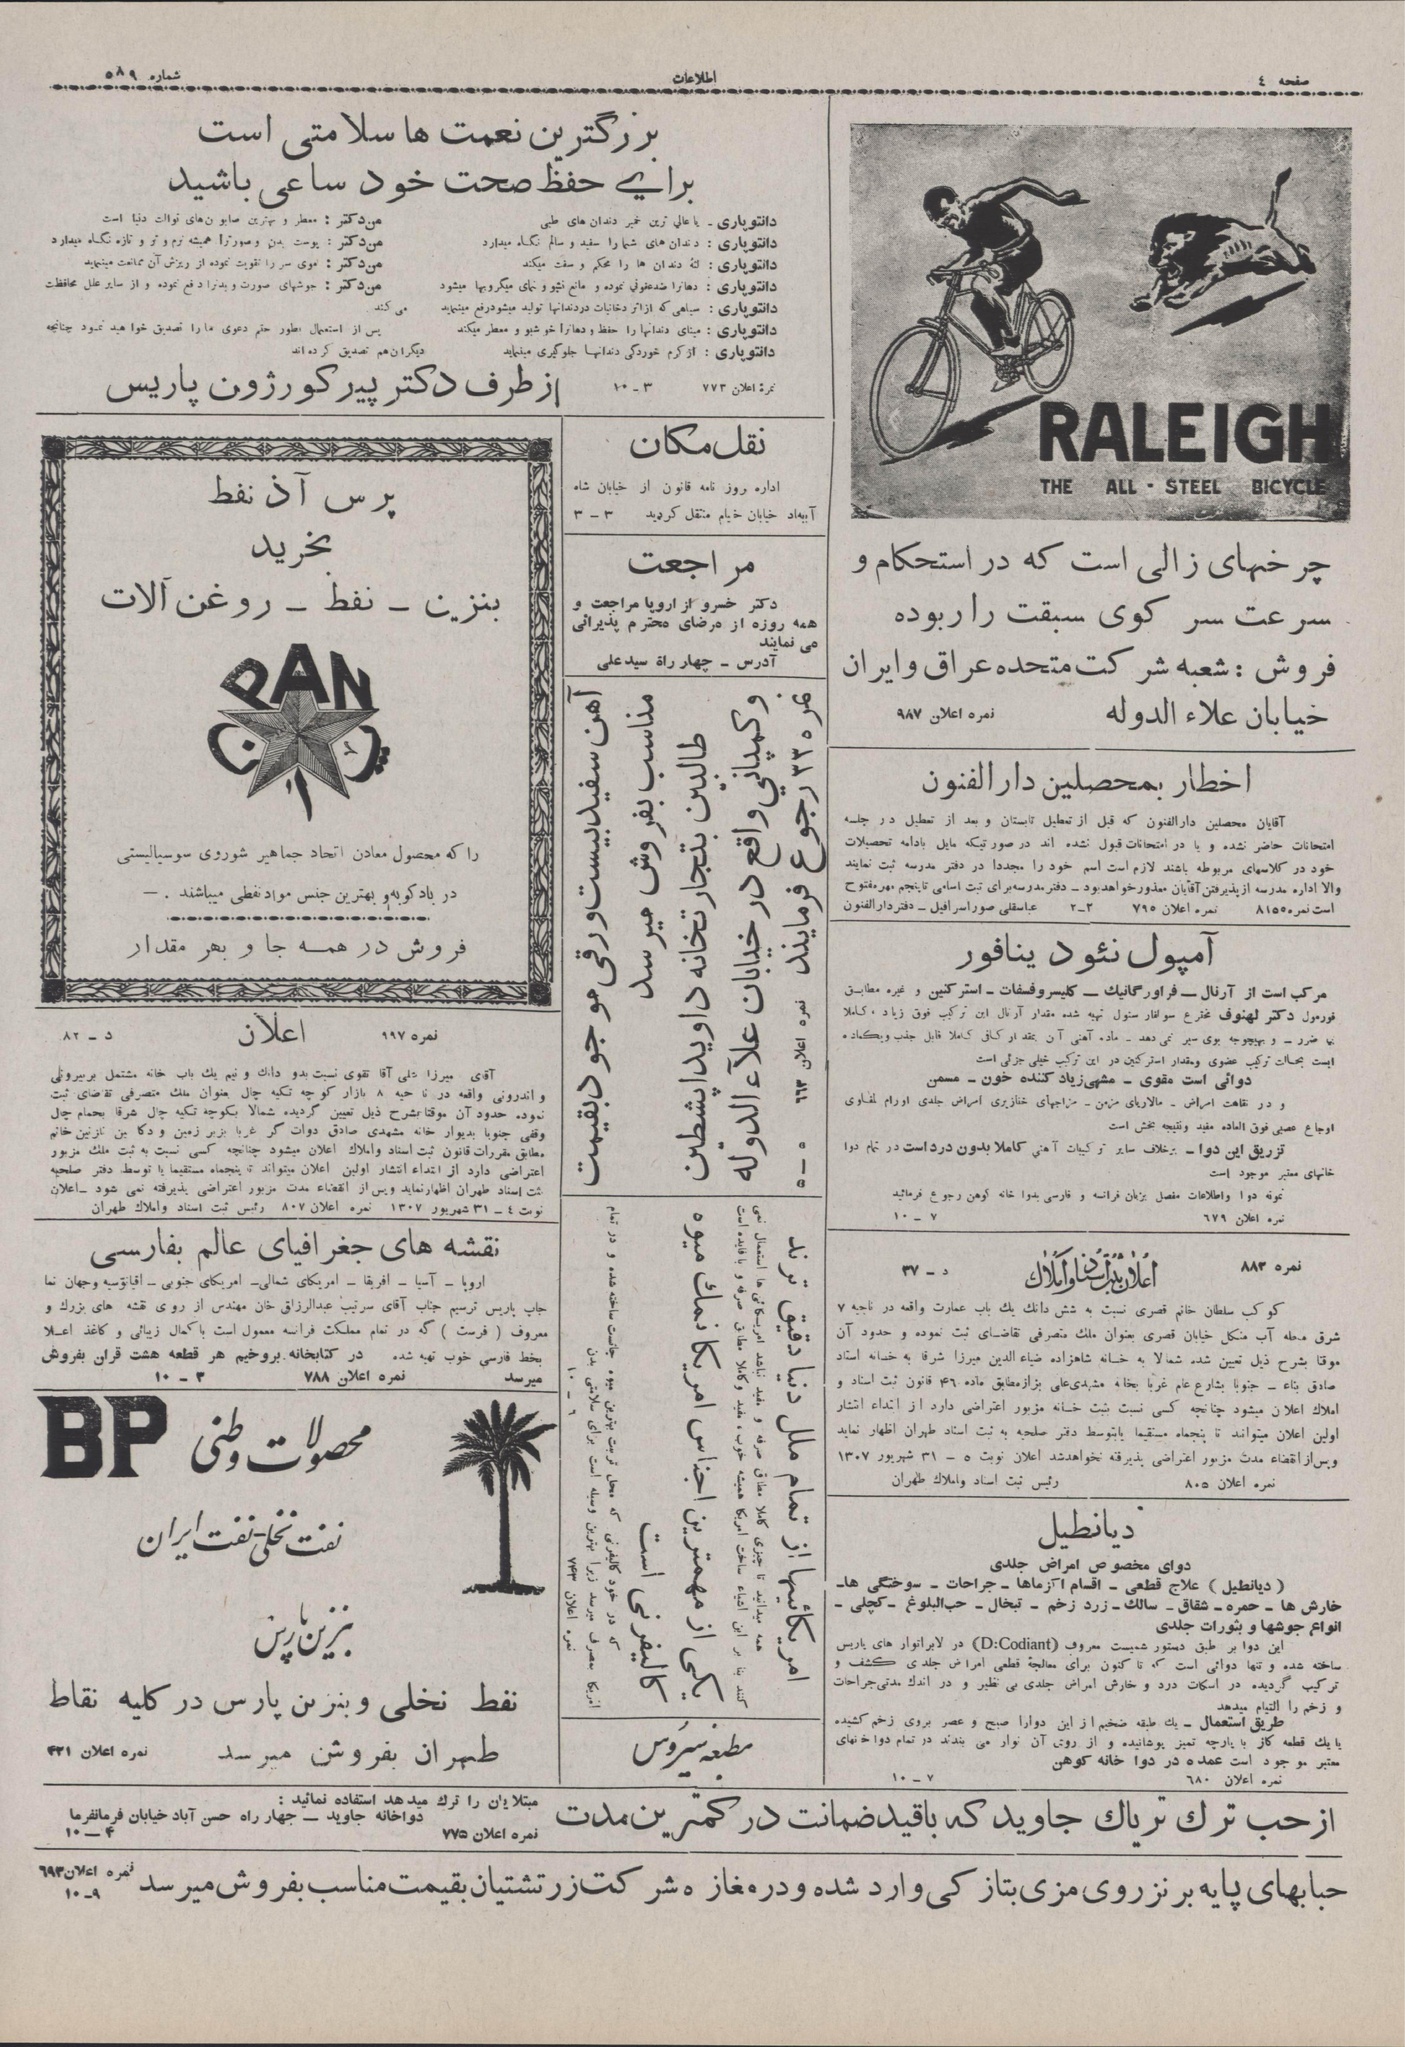 صفحه ٤
اطلاعات
شماره ٥٨٩
RALEIGH
THE ALL-STEEL BICYCLE
چرخهای زالی است که در استحکام و
سرعت سر کوی سبقت را ربوده
فروش : شعبه شرکت متحده عراق و ایران
خیابان علاء الدوله نمره اعلان ۹۸۷
اخطار بمحصلین دارالفنون
آقایان محصلین دارالفنون که قبل از تعطیل تابستان و بعد از تعطیل در جلسه
امتحانات حاضر نشده و یا در امتحانات قبول نشده اند در صورتیکه مایل بادامه تحصیلات
خود در کلاسهای مربوطه باشند لازم است اسم خود را مجددا در دفتر مدرسه ثبت نمایند
والا اداره مدرسه از پذیرفتن آقایان معذور خواهد بود ـ دفتر مدرسه برای ثبت اسامی تا پنجم مهر مفتوح
است نمره ۸۱۵۵ نمره اعلان ۷۹۵ ۲ـ۲ عباسقلی صوراسرافیل ـ دفتر دارالفنون
آمپول نئودینافور
مرکب است از آرنال ـ فراورگانیك ـ کلیسروفسفات ـ استرکنین و غیره مطابق
فورمول دکتر لهنوف مخترع سوافار سنول تهیه شده مقدار آرنال این ترکیب فوق زیاد ، کاملا
بی ضرر ـ و بهیچوجه بوی سیر نمی دهد ـ ماده آهنی آن بمقدار کافی کاملا قابل جذب وبکماده
ایست بحالت ترکیب عضوی ومقدار استرکنین در این ترکیب خیلی جزئی است
دوائی است مقوی ـ مشهی زیاد کننده خون ـ مسمن
و در نقاهت امراض ـ مالاریای مزمن ـ مزاجهای خنازیری امراض جلدی اورام لمفاوی
اوجاع عصبی فوق العاده مفید ونتیجه بخش است
تزریق این دوا ـ برخلاف سایر ترکیبات آهنی کاملا بدون درد است در تمام دوا
خانهای معتبر موجود است
نمونه دوا واطلاعات مفصل بزبان فرانسه و فارسی بدوا خانه کوهن رجوع فرمائید
نمره اعلان ٦٧٩ ۷ ـ ۱۰
نمره ۸۸۳ اعلان ثبت اسناد و املاك د ـ ۳۷
کوکب سلطان خانم قصری نسبت به شش دانك یك باب عمارت واقعه در ناحیه ۷
شرق محله آب منکل خیابان قصری بعنوان ملك متصرفی تقاضای ثبت نموده و حدود آن
موقتا بشرح ذیل تعیین شده شمالا به خانه شاهزاده ضیاءالدین میرزا شرقا به خانه استاد
صادق بناء ـ جنوبا بشارع عام غربا بخانه مشهدی علی بزاز مطابق ماده ۴٦ قانون ثبت اسناد و
املاك اعلان میشود چنانچه کسی نسبت بثبت خانه مزبور اعتراضی دارد از ابتداء انتشار
اولین اعلان میتواند تا پنجماه مستقیما یا بتوسط دفتر صلحیه به ثبت اسناد طهران اظهار نماید
و پس از انقضاء مدت مزبور اعتراضی پذیرفته نخواهد شد اعلان نوبت ٥ ـ ۳۱ شهریور ۱۳۰۷
نمره اعلان ۸۰٥ رئیس ثبت اسناد واملاك طهران
دیانطیل
دوای مخصوص امراض جلدی
( دیانطیل ) علاج قطعی ـ اقسام اکزماها ـ جراحات ـ سوختگی ها ـ
خارش ها ـ حمره ـ شقاق ـ سالك ـ زرد زخم ـ تبخال ـ حب البلوغ ـ کچلی ـ
انواع جوشها و بثورات جلدی
این دوا بر طبق دستور شمیست معروف (D:Codiant) در لابراتوار های پاریس
ساخته شده و تنها دوائی است که تا کنون برای معالجهٔ قطعی امراض جلدی کشف و
ترکیب گردیده در اسکات درد و خارش امراض جلدی بی نظیر و در اندك مدتی جراحات
و زخم را التیام میدهد
طریق استعمال ـ یك طبقه ضخیم از این دوا را صبح و عصر بروی زخم کشیده
با یك قطعه کاز یا پارچه تمیز پوشانیده و از روی آن نوار می بندند در تمام دوا خانهای
معتبر موجود است عمده در دوا خانه کوهن
نمره اعلان ٦٨٠ ۷ ـ ۱۰
بزرگترین نعمت ها سلامتی است
برای حفظ صحت خود ساعی باشید
دانتوپاری ـ یا عالی ترین خمیر دندان های طبی
دانتوپاری : دندان های شما را سفید و سالم نگاه میدارد
دانتوپاری : لثهٔ دندان ها را محکم و سفت میکند
دانتوپاری : دهانرا ضدعفونی نموده و مانع نشو و نمای میکروبها میشود
دانتوپاری : سیاهی که از اثر دخانیات در دندانها تولید میشود رفع مینماید
دانتوپاری : مینای دندانها را حفظ و دهانرا خوشبو و معطر میکند
دانتوپاری : از کرم خوردگی دندانها جلوگیری مینماید
نمره اعلان ۷۷۳ ۳ ـ ۱۰
من دکتر : معطر و بهترین صابون های توالت دنیا است
من دکتر : پوست بدن و صورترا همیشه نرم و تر و تازه نگاه میدارد
من دکتر : موی سر را تقویت نموده از ریزش آن ممانعت مینماید
من دکتر : جوشهای صورت و بدنرا دفع نموده و از سایر علل محافظت
می کند
پس از استعمال بطور حتم دعوی ما را تصدیق خواهید نمود چنانچه
دیگران هم تصدیق کرده اند
از طرف دکتر پیر کورژون پاریس
نقل مکان
اداره روز نامه قانون از خیابان شاه
آباد خیابان خیام منتقل گردید ۳ ـ ۳
مراجعت
دکتر خسرو از اروپا مراجعت و
همه روزه از مرضای محترم پذیرائی
می نمایند
آدرس ـ چهار راه سید علی
آهن سفید بیست ورقی موجود بقیمت
مناسب بفروش میرسد
طالبین بتجارتخانه داوید اپشطین
و کمپانی واقع در خیابان علاء الدوله
نمره ۳۳ رجوع فرمایند نمره اعلان ٦٦٣ ٥ ـ ٥
امریکائیها از تمام ملل دنیا دقیق ترند
همه میدانید تا چیزی کاملا مطابق صرفه و مفید نباشد امریکائی ها استعمال نمی
کنند بنا بر این اشیاء ساخت امریکا همیشه خوب ، مفید و کاملا مطابق صرفه و با فایده است
یکی از مهمترین اجناس امریکا نمك میوه
کالیفرنی است
که در خود کالیفرنی که محل تربیت بهترین میوه جات است ساخته شده و در تمام
امریکا بمصرف میرسد زیرا بهترین وسیله است برای سلامتی بدن
نمره اعلان ۷۴۳ ٦ ـ ۱۰
مطبعه سیروس
پرس آذ نفط
بخرید
بنزین ـ نفط ـ روغن آلات
PAN
را که محصول معادن اتحاد جماهیر شوروی سوسیالیستی
در بادکوبه و بهترین جنس مواد نفطی میباشند . ـ
فروش در همه جا و بهر مقدار
نمره ۹۹۷ اعلان د ـ ۸۲
آقای میرزا علی آقا تقوی نسبت بدو دانك و نیم یك باب خانه مشتمل بر بیرونی
و اندرونی واقعه در ناحیه ۸ بازار کوچه تکیه چال بعنوان ملك متصرفی تقاضای ثبت
نموده حدود آن موقتا بشرح ذیل تعیین گردیده شمالا بکوچه تکیه چال شرقا بحمام چال
وقفی جنوبا بدیوار خانه مشهدی صادق دوات گر غربا بزیر زمین و دکاکین نازنین خانم
مطابق مقررات قانون ثبت اسناد واملاك اعلان میشود چنانچه کسی نسبت به ثبت ملك مزبور
اعتراضی دارد از ابتداء انتشار اولین اعلان میتواند تا پنجماه مستقیما یا توسط دفتر صلحیه
ثبت اسناد طهران اظهار نماید و پس از انقضاء مدت مزبور اعتراضی پذیرفته نمی شود ـ اعلان
نوبت ٤ ـ ۳۱ شهریور ۱۳۰۷ نمره اعلان ۸۰۷ رئیس ثبت اسناد واملاك طهران
نقشه های جغرافیای عالم بفارسی
اروپا ـ آسیا ـ افریقا ـ امریکای شمالی ـ امریکای جنوبی ـ اقیانوسیه وجهان نما
چاپ پاریس ترسیم جناب آقای سرتیپ عبدالرزاق خان مهندس از روی نقشه های بزرگ و
معروف ( فرست ) که در تمام مملکت فرانسه معمول است با کمال زیبائی و کاغذ اعلا
بخط فارسی خوب تهیه شده در کتابخانه بروخیم هر قطعه هشت قران بفروش
میرسد نمره اعلان ۷۸۸ ۳ ـ ۱۰
BP
محصولات وطنی
نفت نخلی ـ نفت ایران
بنزین پارس
نفط نخلی و بنزین پارس در کلیه نقاط
طهران بفروش میرسد نمره اعلان ۴۲۱
از حب ترك تریاك جاوید که باقید ضمانت در کمترین مدت
مبتلایان را ترك میدهد استفاده نمائید :
دواخانه جاوید ـ چهار راه حسن آباد خیابان فرمانفرما
نمره اعلان ۷۷۵ ۴ ـ ۱۰
حبابهای پایه برنز روی مزی بتازکی وارد شده و در مغازه شرکت زرتشتیان بقیمت مناسب بفروش میرسد
نمره اعلان ٦٩٣
۹ـ۱۰